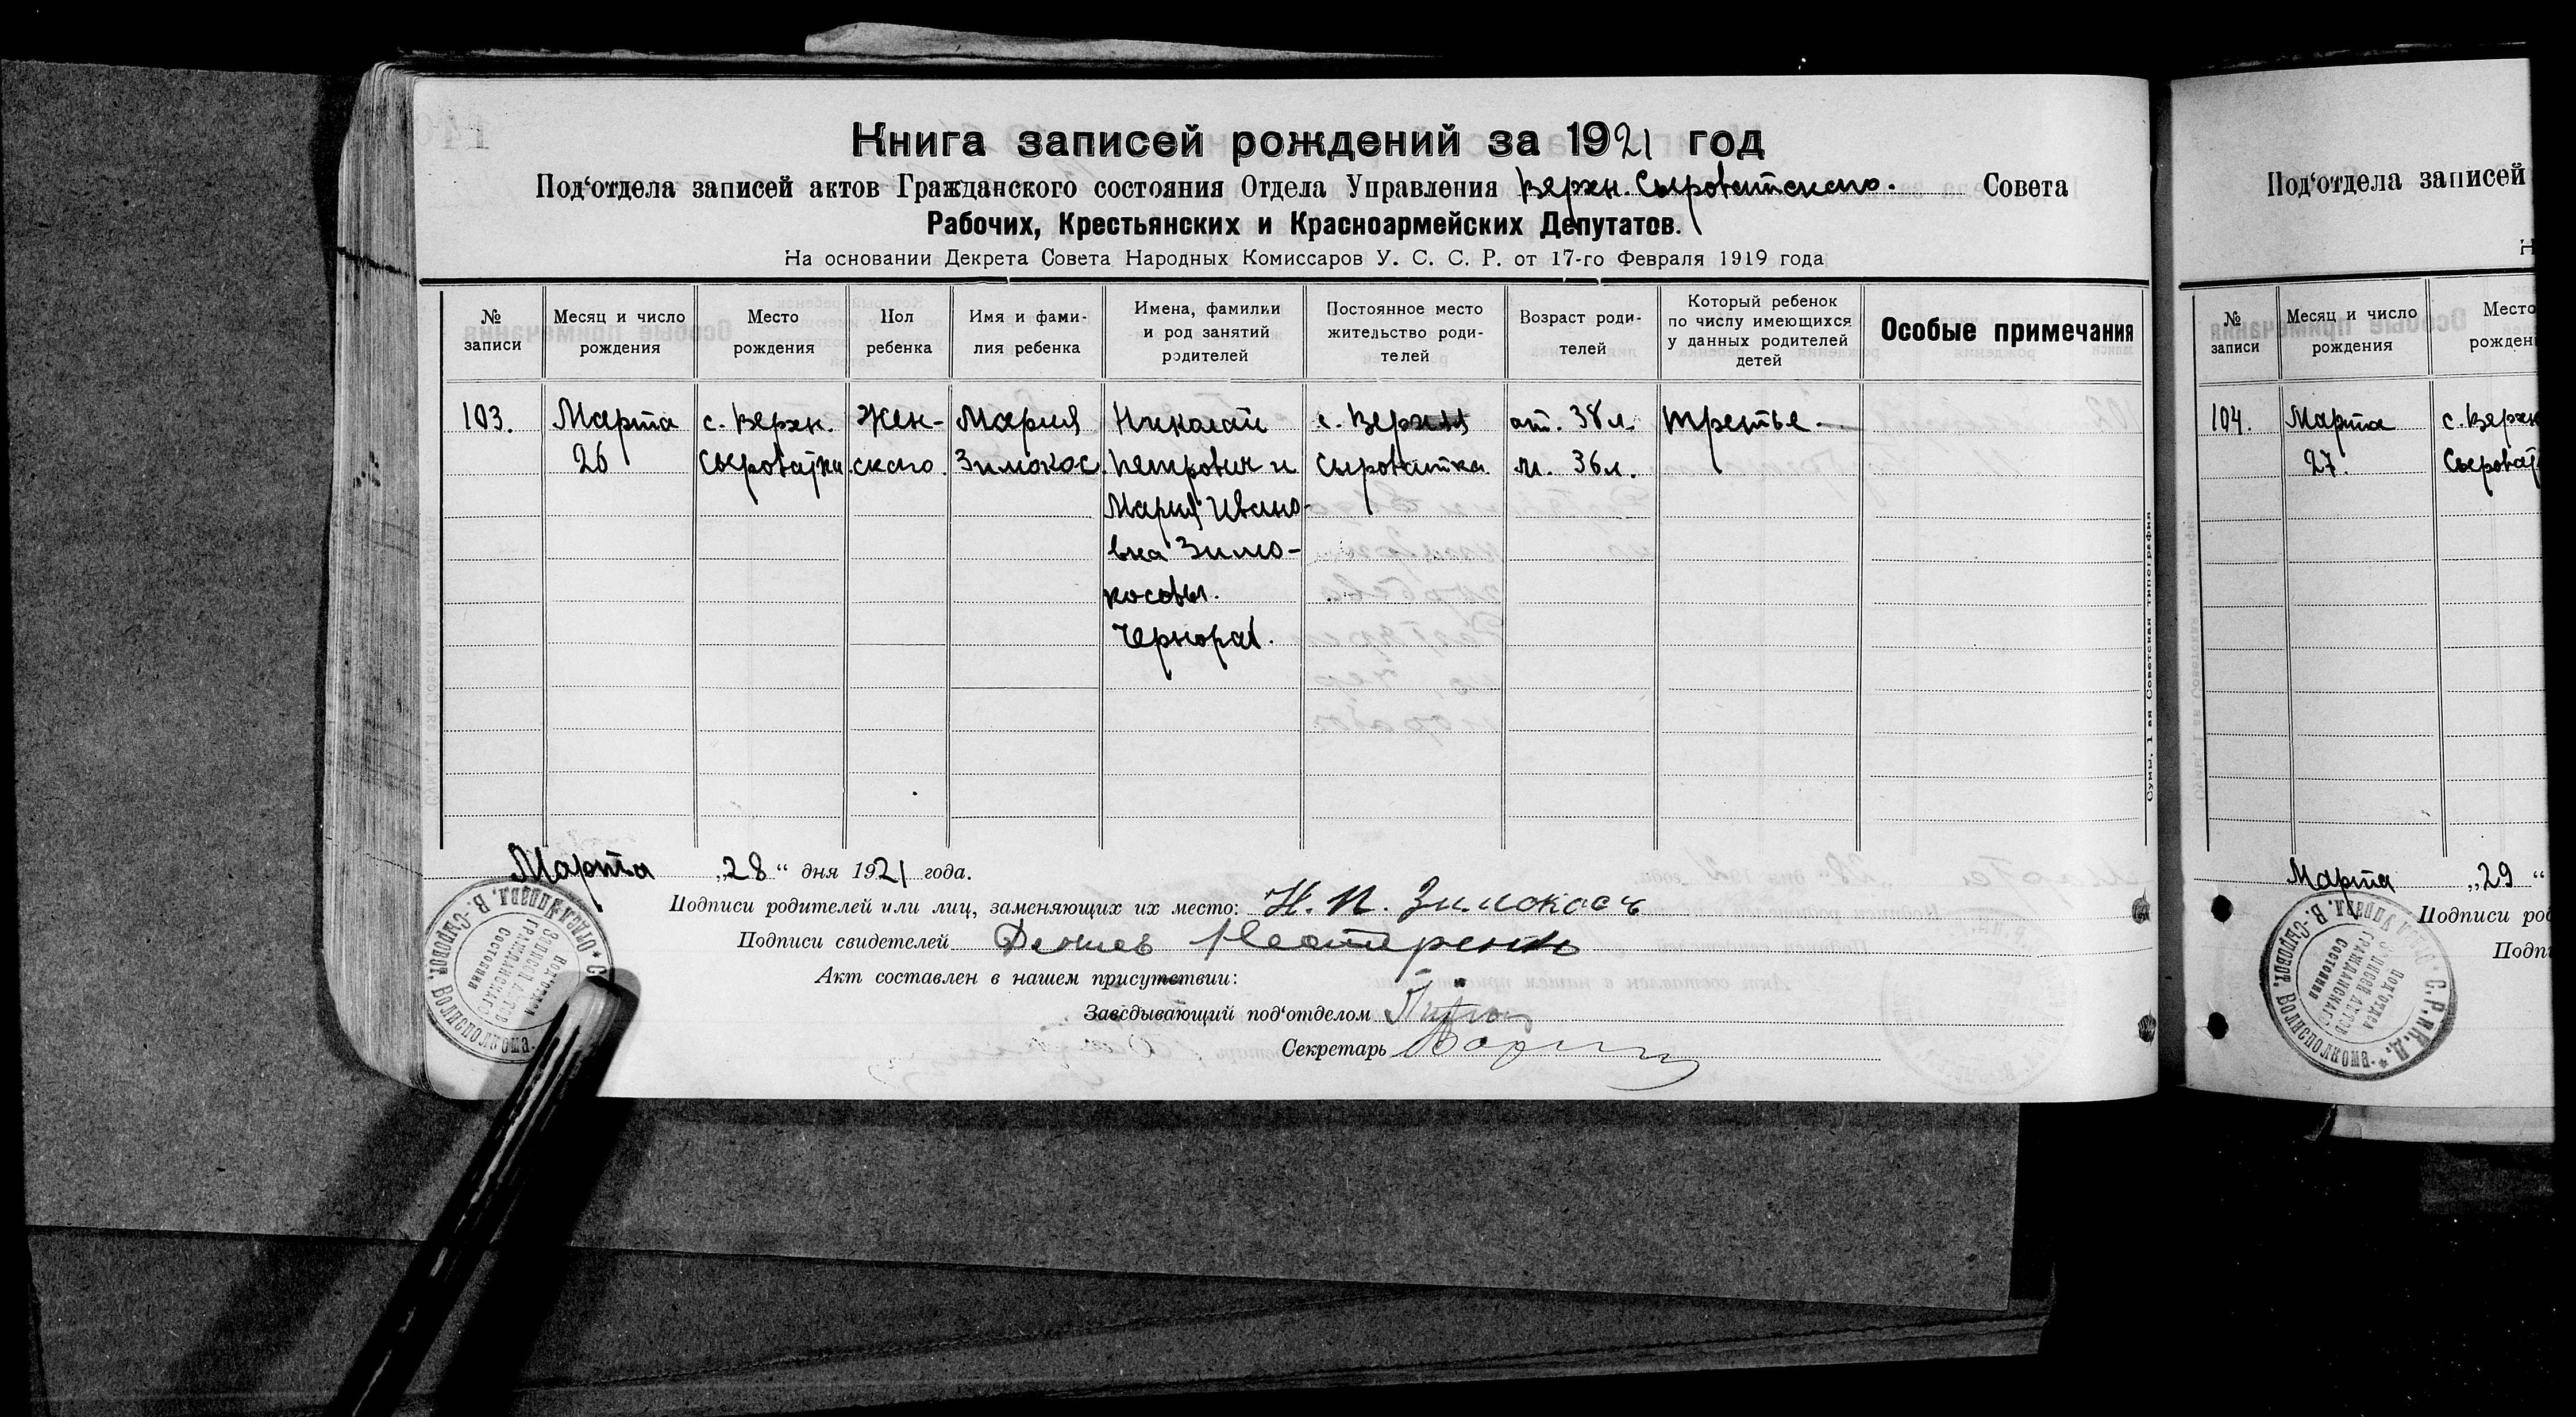 Книга записей рождений за 1921 год
Под'отдела записей актов Гражданского состояния Отдела Управления Верхн. Сыроватского. Совета
Рабочих, Крестьянских и Красноармейских Депутатов.
На основании Декрета Совета Народных Комиссаров У. С. С. Р. от 17-го Февраля 1919 года
№
записи
Месяц и число
рождения
Место
рождения
Пол
ребенка
Имя и фами-
лия ребенка
Имена, фамилии
и род занятий
родителей
Постоянное место
жительство роди-
телей
Возраст роди-
телей
Который ребенок
по числу имеющихся
у данных родителей
детей
Особые примечания
103.
Марта
26
с. Верхн.
Сыроватка.
Жен-
ского.
Мария
Зимокос.
Николай
Петрович и
Мария Ивано-
вна Зимо-
косовы.
Чернораб.
с. Верхняя
Сыроватка.
от. 38 л.
м. 36 л.
третье.
Марта „28“ дня 1921 года.
Подписи родителей или лиц, заменяющих их место: Н. П. Зимокосъ
Подписи свидетелей
Акт составлен в нашем присутствии:
Заведывающий под'отделом
Секретарь
Сумы, 1-ая Советская типография
Под'отдела записей
Н
№
записи
Месяц и число
рождения
Место
рожден
104.
Марта
27.
с. Верхн
Сыроват
Марта „29“
Подписи род
Подпи